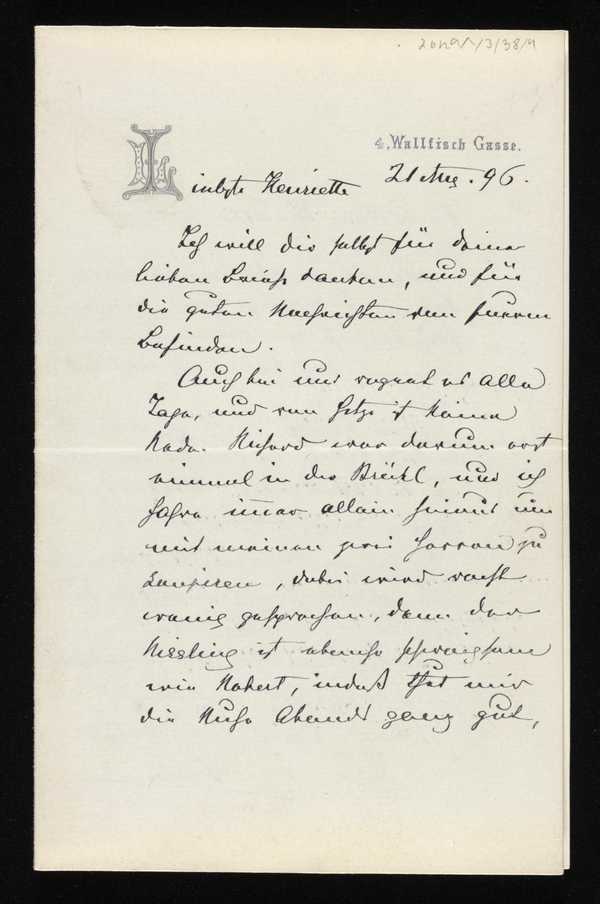 4, Wallfisch Gasse.
21 Aug. 96.
Liebste Henriette
Ich will dir selbst für deine
lieben Briefe danken, und für
die guten Nachrichten von Eurem
Befinden.
Auch bei uns regnet es alle
Tage, und von Hitze ist keine
Rede. Richard war darum erst
einmal in der Brühl, und ich
fahre immer allein hinaus um
mit meinen zwei Herren zu
soupiren, dabei wird recht
wenig gesprochen, denn der
Kissling ist ebenso schweigsam
wie Robert, indeß thut mir
die Ruhe Abends ganz gut,